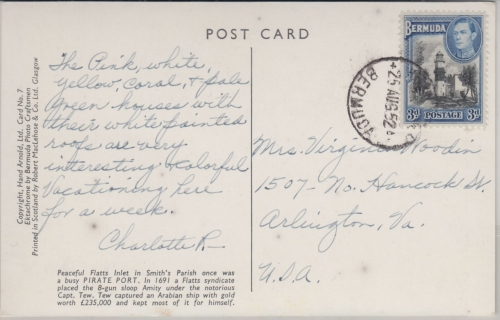 POST CARD
Copyright, Hand Arnold, Ltd. Card No. 7
Ektachrome by Bermuda Photo Craftsmen
Printed in Scotland by Robert MacLehose & Co. Ltd. Glasgow
The Pink, white,
yellow, coral, & pale
green houses with
their white painted
roofs are very
interesting & colorful
Vacationing here
for a week.
Charlotte R—
Peaceful Flatts Inlet in Smith's Parish once was
a busy PIRATE PORT. In 1691 a Flatts syndicate
placed the 8-gun sloop Amity under the notorious
Capt. Tew. Tew captured an Arabian ship with gold
worth £235,000 and kept most of it for himself.
BERMUDA
3d POSTAGE 3d
25 AUG 52
BERMUDA
Mrs. Virginia Woodin
1507- No. Hancock St.
Arlington, Va.
U.S.A.